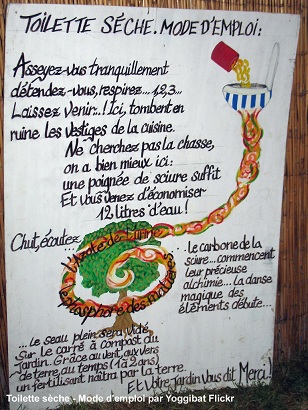 TOILETTE SÉCHE. MODE D'EMPLOI:
Asseyez-vous tranquillement
détendez-vous, respirez... 1,2,3...
Laissez venir..! Ici, tombent en
ruine les vestiges de la cuisine.
Ne cherchez pas la chasse,
on a bien mieux ici:
une poignée de sciure suffit
Et vous venez d'économiser
12 litres d'eau!
Chut, écoutez...
...L'azote de l'urine
le phosphore des matières
...le carbone de la
sciure... commencent
leur précieuse
alchimie... la danse
magique des
éléments débute...
... le seau plein sera vidé
sur le carré à compost du
jardin. Grâce au vent, aux vers
de terre, au temps (1 à 2 ans)
un fertilisant naîtra par la terre.
Et Votre Jardin Vous dit Merci!
Toilette sèche - Mode d'emploi par Yoggibat Flickr